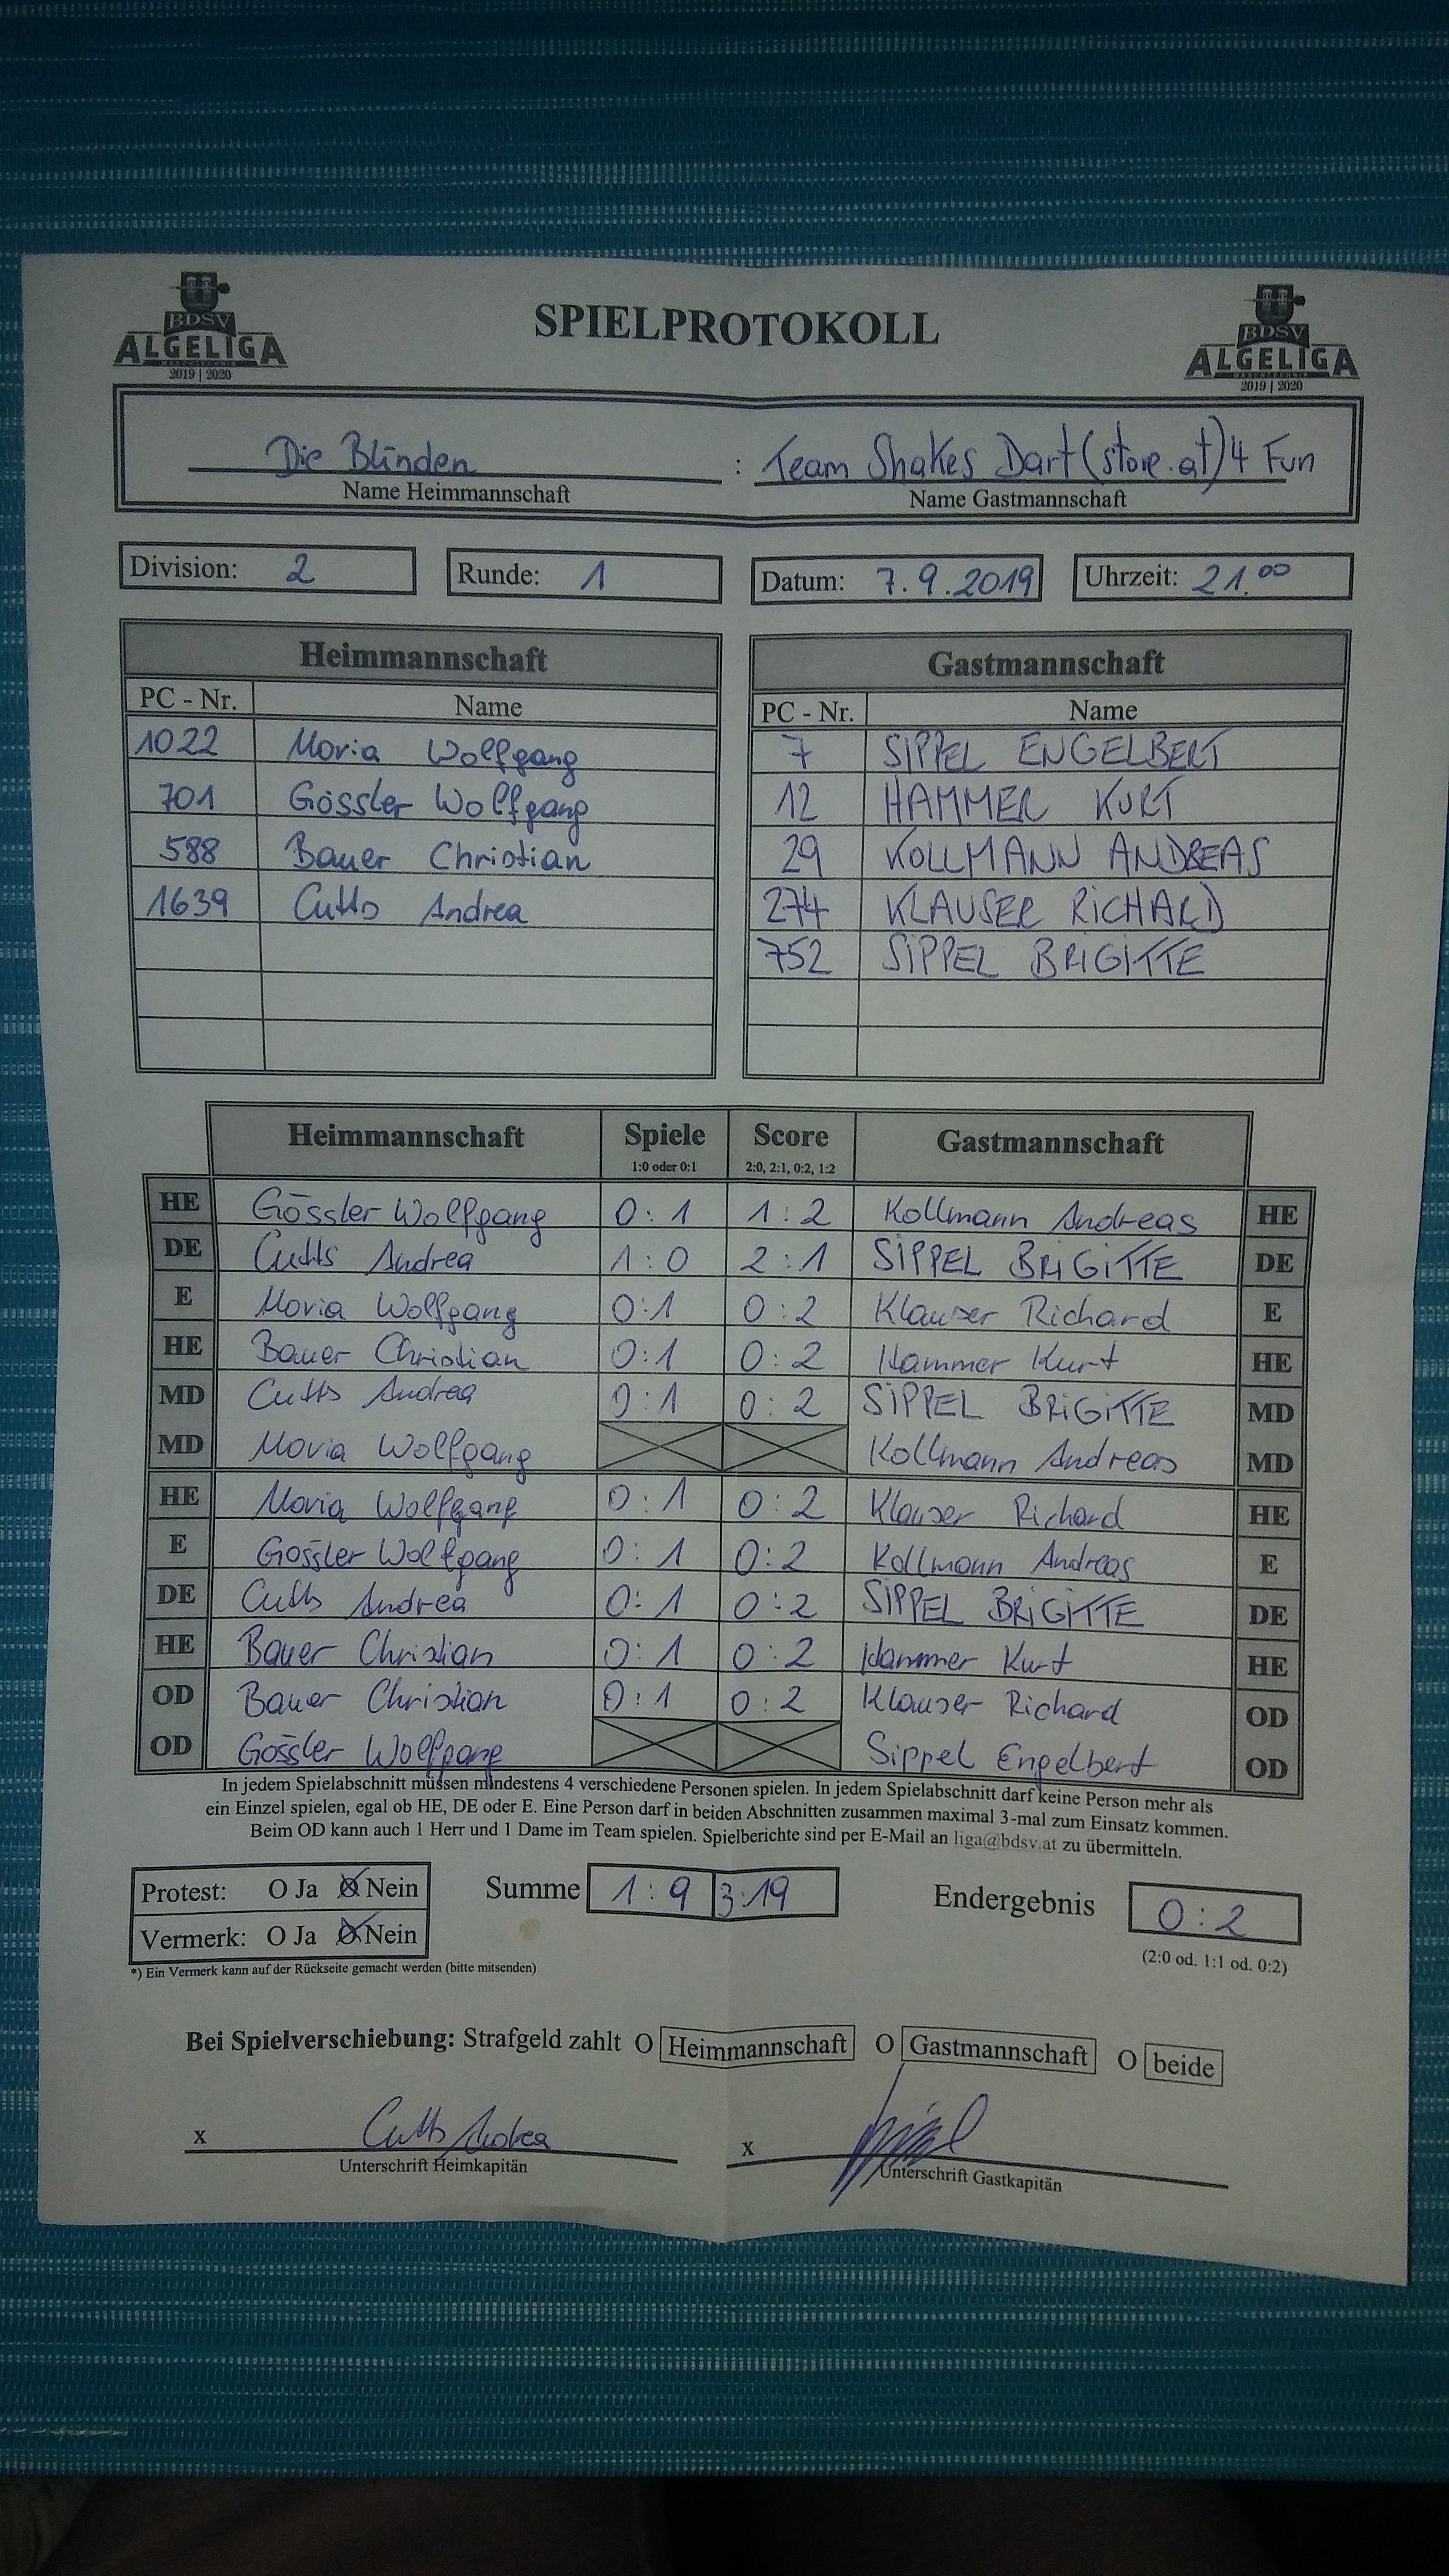 BDSV
ALGELIGA
2019 | 2020
SPIELPROTOKOLL
BDSV
ALGELIGA
2019 | 2020
Die Blinden : Team Shakes Dart(store.at)4 Fun
Name Heimmannschaft Name Gastmannschaft
Division: 2 Runde: 1 Datum: 7.9.2019 Uhrzeit: 21.00
Heimmannschaft Gastmannschaft
PC - Nr. Name PC - Nr. Name
1022 Moria Wolfgang 7 SIPPEL ENGELBERT
701 Gössler Wolfgang 12 HAMMER KURT
588 Bauer Christian 29 KOLLMANN ANDREAS
1639 Cutts Andrea 274 KLAUSER RICHARD
752 SIPPEL BRIGITTE
Heimmannschaft Spiele Score Gastmannschaft
1:0 oder 0:1 2:0, 2:1, 0:2, 1:2
HE Gössler Wolfgang 0:1 1:2 Kollmann Andreas HE
DE Cutts Andrea 1:0 2:1 SIPPEL BRIGITTE DE
E Moria Wolfgang 0:1 0:2 Klauser Richard E
HE Bauer Christian 0:1 0:2 Hammer Kurt HE
MD Cutts Andrea 0:1 0:2 SIPPEL BRIGITTE MD
MD Moria Wolfgang Kollmann Andreas MD
HE Moria Wolfgang 0:1 0:2 Klauser Richard HE
E Gössler Wolfgang 0:1 0:2 Kollmann Andreas E
DE Cutts Andrea 0:1 0:2 SIPPEL BRIGITTE DE
HE Bauer Christian 0:1 0:2 Hammer Kurt HE
OD Bauer Christian 0:1 0:2 Klauser Richard OD
OD Gössler Wolfgang Sippel Engelbert OD
In jedem Spielabschnitt müssen mindestens 4 verschiedene Personen spielen. In jedem Spielabschnitt darf keine Person mehr als
ein Einzel spielen, egal ob HE, DE oder E. Eine Person darf in beiden Abschnitten zusammen maximal 3-mal zum Einsatz kommen.
Beim OD kann auch 1 Herr und 1 Dame im Team spielen. Spielberichte sind per E-Mail an liga@bdsv.at zu übermitteln.
Protest: O Ja O Nein Summe 1:9 3:19 Endergebnis 0:2
Vermerk: O Ja O Nein
(2:0 od. 1:1 od. 0:2)
*) Ein Vermerk kann auf der Rückseite gemacht werden (bitte mitsenden)
Bei Spielverschiebung: Strafgeld zahlt O Heimmannschaft O Gastmannschaft O beide
x Cutts Andrea x
Unterschrift Heimkapitän Unterschrift Gastkapitän